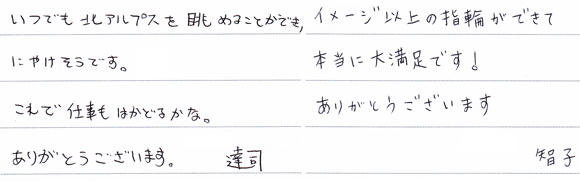 いつでも北アルプスを眺めることができ,
にやけそうです。
これで仕事もはかどるかな。
ありがとうございます。 達司
イメージ以上の指輪ができて
本当に大満足です!
ありがとうございます
智子